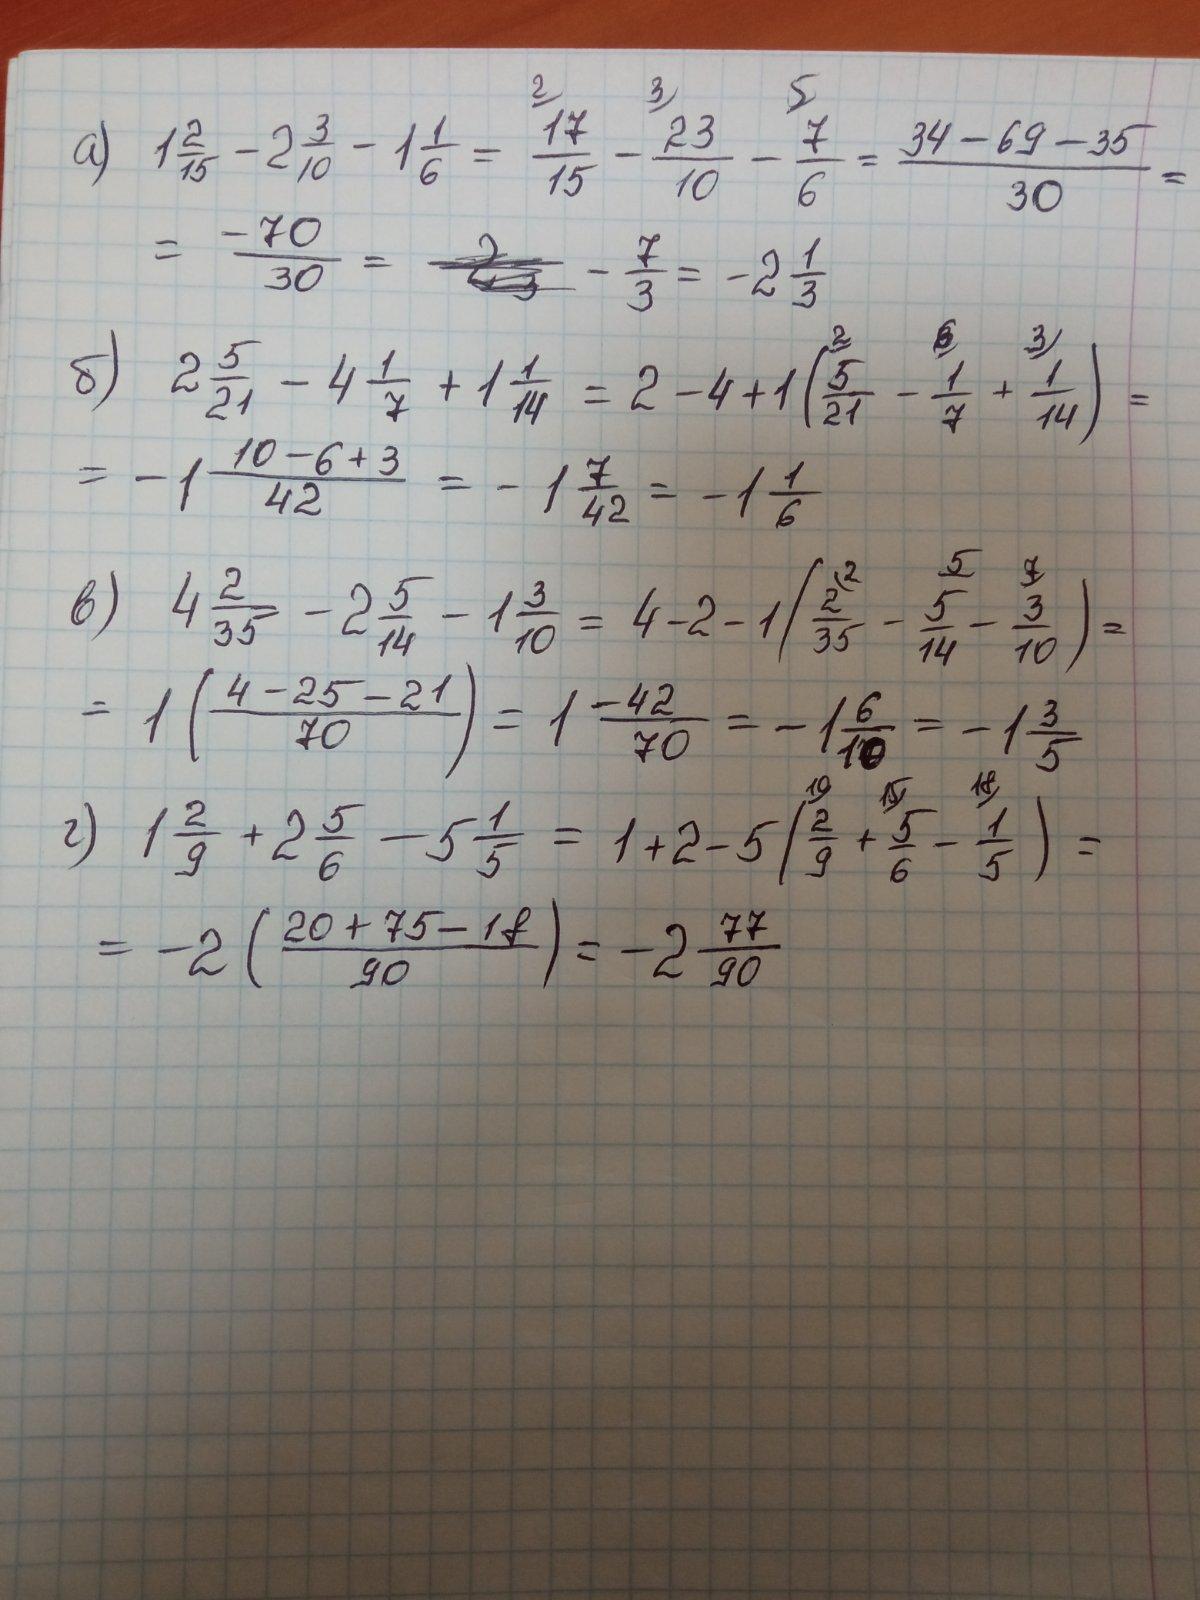 2) 3) 5
а) 1 2/15 - 2 3/10 - 1 1/6 = 17/15 - 23/10 - 7/6 = (34 - 69 - 35)/30 =
= -70/30 = - 7/3 = -2 1/3
2) 6 3)
б) 2 5/21 - 4 1/7 + 1 1/14 = 2 - 4 + 1 (5/21 - 1/7 + 1/14) =
= -1 (10 - 6 + 3)/42 = -1 7/42 = -1 1/6
2 5 7
в) 4 2/35 - 2 5/14 - 1 3/10 = 4 - 2 - 1 (2/35 - 5/14 - 3/10) =
= 1 ((4 - 25 - 21)/70) = 1 -42/70 = -1 6/10 = -1 3/5
10) 15) 18)
г) 1 2/9 + 2 5/6 - 5 1/5 = 1 + 2 - 5 (2/9 + 5/6 - 1/5) =
= -2 ((20 + 75 - 18)/90) = -2 77/90